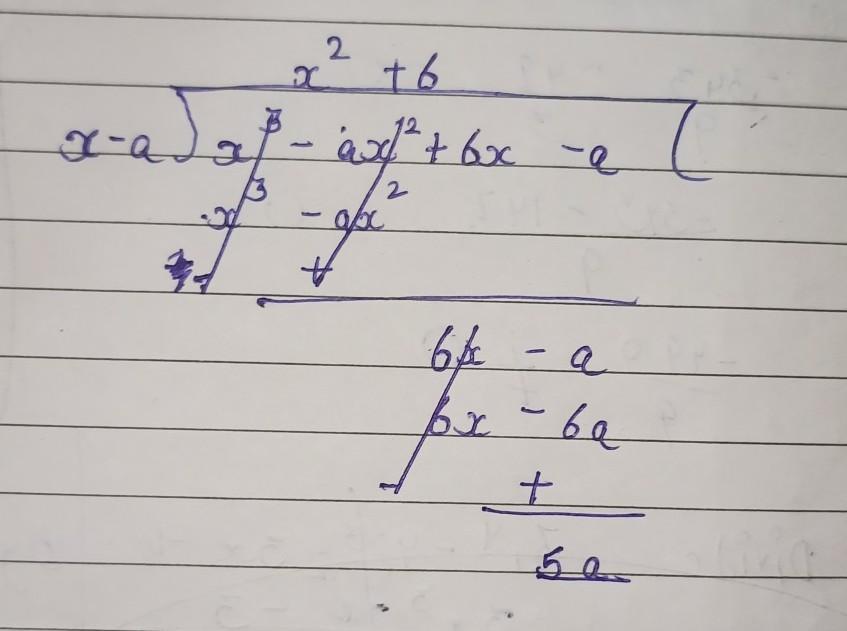 x² + 6
x - a ) x³ - ax² + 6x - a (
x³ - ax²
- +
6x - a
6x - 6a
- +
5a